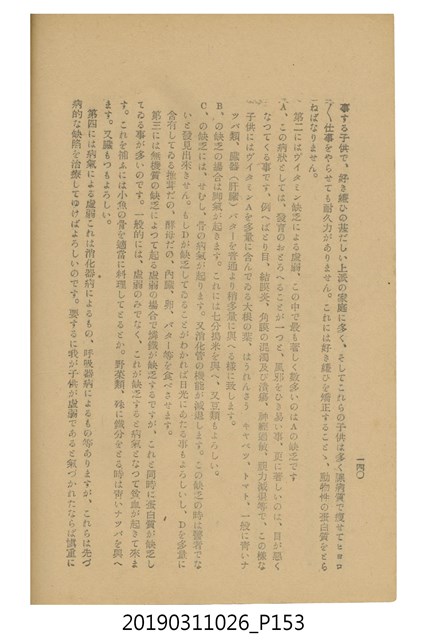 一四〇
事する子供で、好き嫌ひの甚だしい上流の家庭に多く、そしてこれらの子供は多く神經質で痩せてヒヨロ
〳〵仕事をやらせても耐久力がありません。これには好き嫌ひを矯正すること、動物性の蛋白質をとら
ねばなりません。
第二にはヴイタミン缺乏による虚弱、この中で最も著しく數多いのはAの缺乏です
A、この病狀としては、發育のおとろへることが一つと、風邪をひき易い事、更に著しいのは、目が惡く
なつてくる事です。例へばとり目、結膜炎、角膜の混濁及び潰瘍、神經過敏、視力減退等で、この樣な
子供にはヴイタミンAを多量に含んでゐる大根の葉、はうれんさう キヤベツ、トマト、一般に靑いナ
ツパ類、臟器(肝臟)バターを普通より稍多量に與へる樣に致します。
B、の缺乏の場合は脚氣が起きます。これには七分搗米を與へ、又豆類もよろしい。
C、の缺乏には、せむし、骨の病氣が起ります。又消化管の機能が減退します。この缺乏の時は醫者でな
いと發見出來ません。もしDが缺乏してゐることがわかれば日光にあたる事もよろしいし、Dを多量に
含有してゐる椎茸だの、酵母だの、內臟、卵、バター等を食べさせます。
第三には無機質の缺乏によつて起る虚弱の場合で鐵僟が缺乏するですが、これと同時に蛋白質が缺乏し
てゐる事が多いのです。一般的には、虚弱のみでなく、これが缺乏すると病氣となつて貧血が起きて來ま
す。これを補ふには小魚の骨を適當に料理してとるとか。野菜類、殊に鐵分をとる時は靑いナツパを與へ
ます。又臟もつもよろしい。
第四には病氣による虚弱これは消化器病によるもの、呼吸器病によるもの等ありますが、これらは先づ
病的な缺陷を治療してゆけばよろしいのです。要するに我が子供が虚弱であると氣づかれたならば愼重に
20190311026_P153